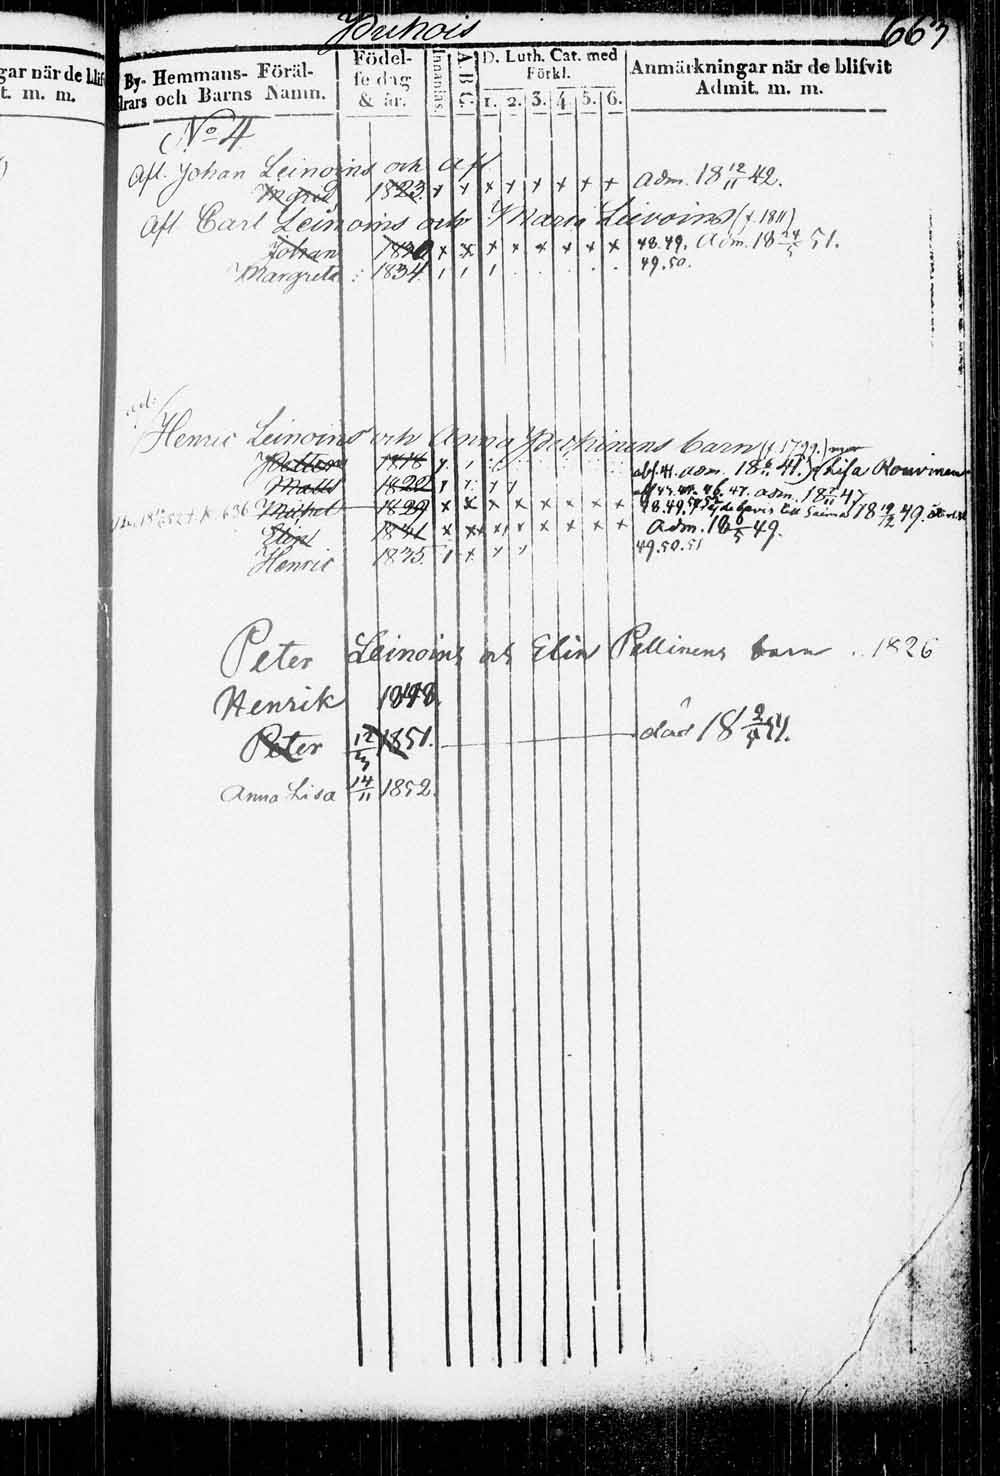 Puhois 663
gar när de blif
t. m. m.
By- Hemmans- Föräl-
drars och Barns Namn.
Födel-
se dag
& år.
Innanläs.
A.B.C.
D. Luth. Cat. med
Förkl.
1. 2. 3. 4 5. 6.
Anmärkningar när de blifvit
Admit. m. m.
No 4
Afl. Johan Leinoins och Afl
Ingrid 1823. x x x x x x x x Adm. 18 12/11 42.
Afl Carl Leinoins och Maria (f. 1811)
Johan 1830 x x x x x x x x 48.49. Adm. 18 24/5 51.
Margreta : 1834. 49.50.
Henric Leinoins och Anna barn (f. 1799)
Petter 1818 abs. 41. adm. 18 41. Lisa Rouvinen
Matts 1822 46. 47. adm. 18 7/11 47
Michel 1829 x x x x x x x x 48.49. till Saima 18 49.
Elin 1831 x x x x x x x x Adm. 18 6/5 49.
Henric 1835. 49.50.51
Peter Leinoins och Elin Pellinens barn .. 1826
Henrik 1848.
Peter 12/3 1851. död 18 51.
Anna Lisa 14/11 1852.